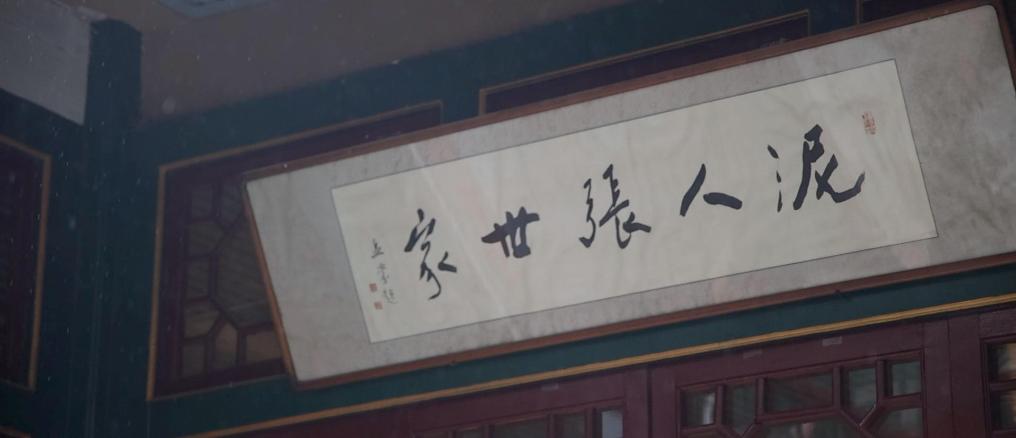 泥人張世家